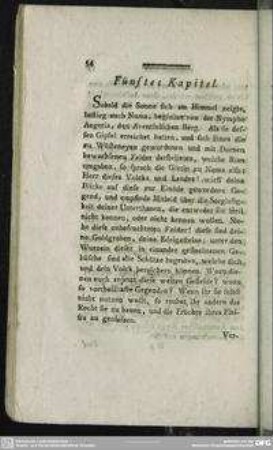 56
Fünftes Kapitel.
Sobald die Sonne sich am Himmel zeigte,
bestieg auch Numa, begleitet von der Nymphe
Aegeria, den Aventinischen Berg. Als sie des-
sen Gipfel erreichet hatten, und sich ihnen die
zu Wüsteneyen gewordenen und mit Dornen
bewachsenen Felder darstelleten, welche Rom
umgaben, so sprach die Göttin zu Numa also:
Herr dieses Volcks und Landes! wirf deine
Blicke auf diese zur Einöde gewordene Ge-
gend, und empfinde Mitleid über die Sorglosig-
keit deiner Unterthanen, die entweder den Werth
nicht kennen, oder nicht kennen wollen.
diese unbefruchteten Felder! diese sind dei-
ne Goldgruben, deine Königreiche: unter den
Wurzeln dieser in einander geflochtenen Ge-
büsche sind alle Schätze begraben, welche dich,
und dein Volck bereichern können. Wozu die-
nen euch anjetzt diese weiten Gefilde? wozu
so vortheilhafte Gegenden? Wenn ihr sie selbst
nicht nutzen wollt, so raubet ihr andern das
Recht sie zu bauen, und die Früchte ihres Flei-
ßes zu genießen.
Ver-